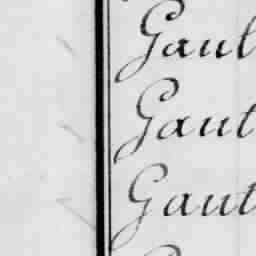 Gaul
Gaut
Gaut